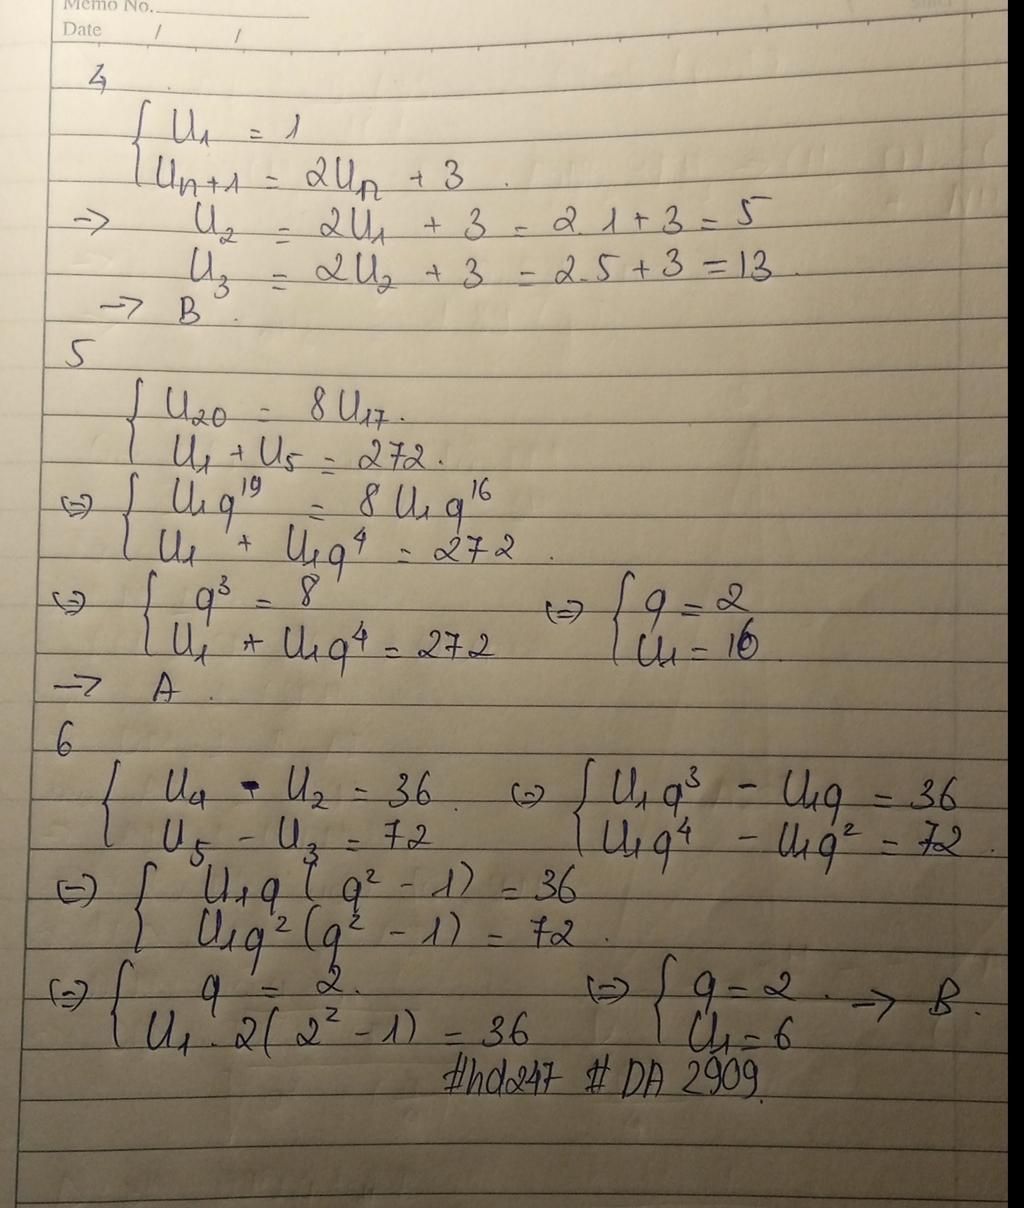 Memo No.
Date / /
4
U1 = 1
Un+1 = 2Un + 3
→ U2 = 2U1 + 3 = 2.1 + 3 = 5
U3 = 2U2 + 3 = 2.5 + 3 = 13
→ B.
5
U20 = 8U17.
U1 + U5 = 272.
⇔ U1q^19 = 8U1q^16
U1 + U1q^4 = 272.
⇔ q^3 = 8 ⇔ q = 2
U1 + U1q^4 = 272 U1 = 16
→ A.
6
U4 - U2 = 36. ⇔ U1q^3 - U1q = 36
U5 - U3 = 72 U1q^4 - U1q^2 = 72.
⇔ U1q(q^2 - 1) = 36
U1q^2(q^2 - 1) = 72.
⇔ q = 2. ⇔ q = 2. → B.
U1.2(2^2 - 1) = 36 U1 = 6
#hd247 # DA 2909.